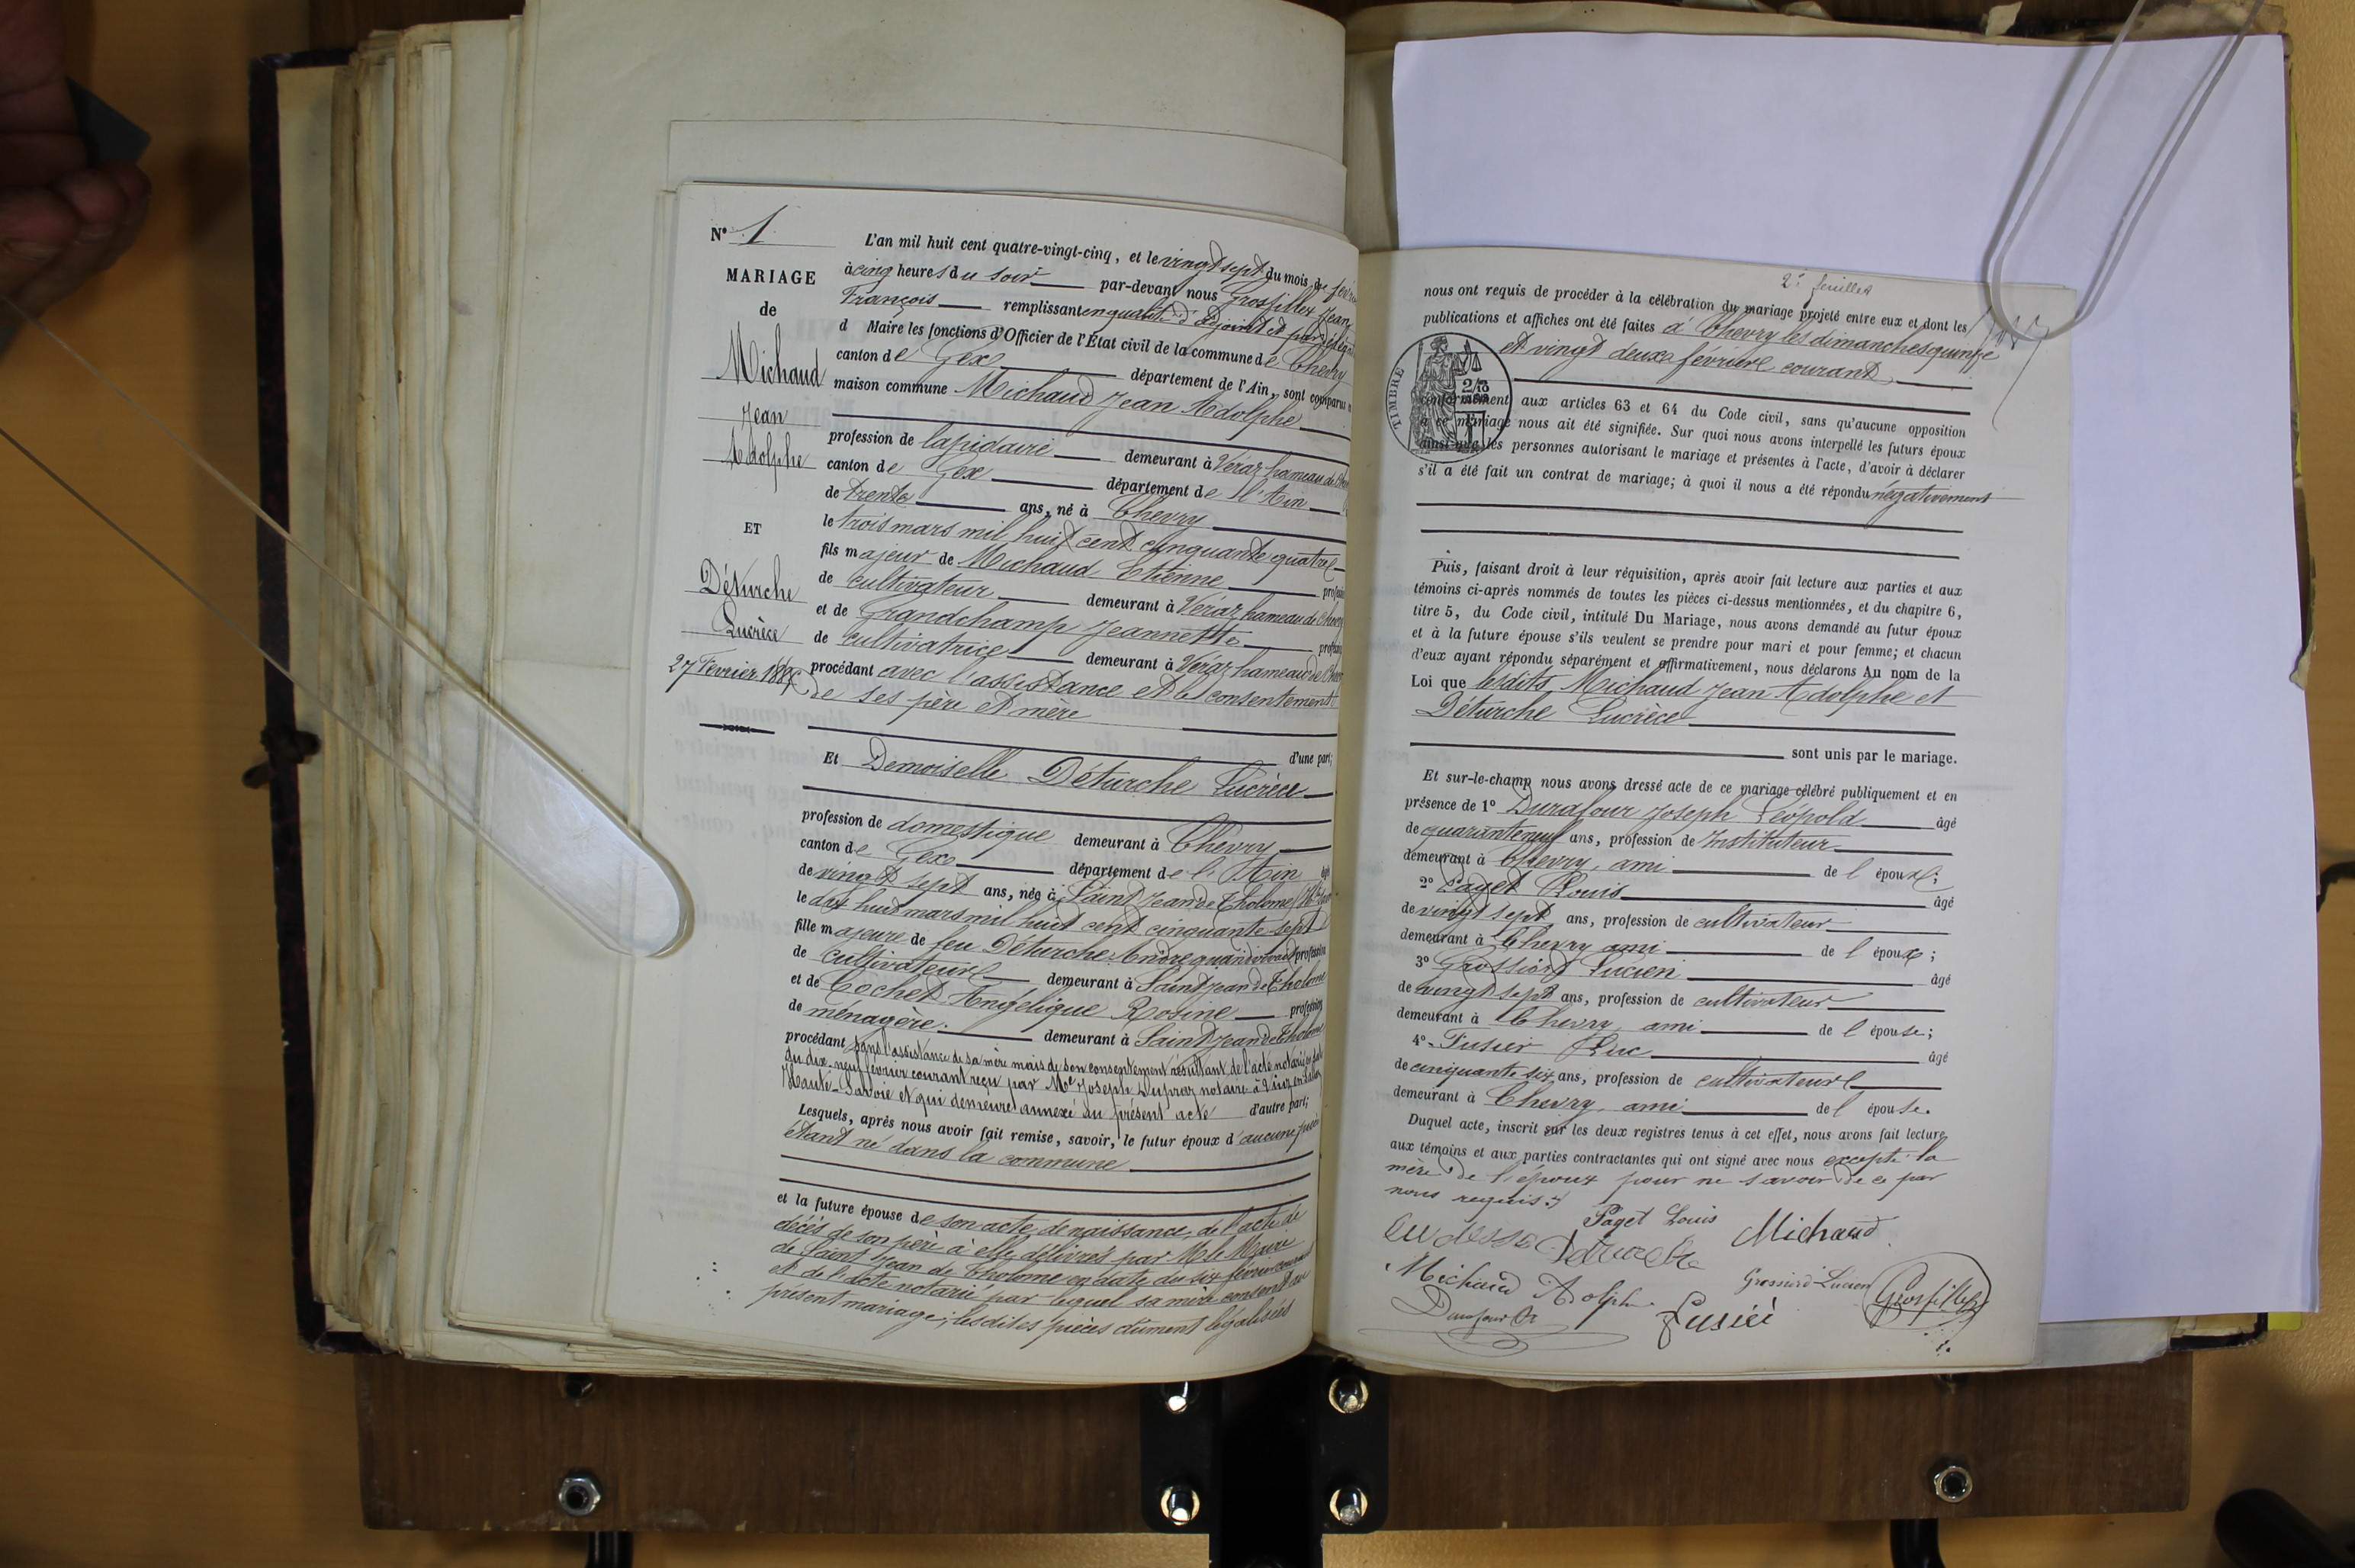 N° 1
MARIAGE
de
Michaud
Jean
Adolphe
ET
Déturche
Lucrèce
27 Février 1885
L'an mil huit cent quatre-vingt-cinq, et le vingt sept du mois de
à cinq heures du soir par-devant nous Grosfillex Jean
François remplissant en qualité d'adjoint et par
d Maire les fonctions d'Officier de l'État civil de la commune de Chevry
canton de Gex département de l'Ain, sont comparus
maison commune Michaud Jean Adolphe
profession de lapidaire demeurant à Véraz hameau de
canton de Gex département de l'Ain
de trente ans, né à Chevry
le trois mars mil huit cent cinquante quatre
fils majeur de Michaud Etienne
de cultivateur demeurant à Véraz hameau de Chevry
et de Grandchamp Jeannette
de cultivatrice demeurant à Véraz hameau de
procédant avec l'assistance et le consentement
de ses père et mère
d'une part;
Et Demoiselle Déturche Lucrèce
profession de domestique demeurant à Chevry
canton de Gex département de l'Ain
de vingt sept ans, née à Saint Jean de Tholome
le dix huit mars mil huit cent cinquante sept
fille majeure de feu Déturche André quand vivait profession
de cultivateur demeurant à Saint Jean de Tholome
et de Cochet Angélique Rosine profession
de ménagère. demeurant à Saint Jean de Tholome
procédant sans l'assistance de sa mère mais de son consentement résultant de l'acte notarié en date
du dix-neuf février courant reçu par Me Joseph Dupraz notaire à Viuz en Sallaz
Haute-Savoie et qui demeure annexé au présent acte d'autre part;
Lesquels, après nous avoir fait remise, savoir, le futur époux d'aucune pièce
étant né dans la commune
et la future épouse de son acte de naissance, de l'acte de
décès de son père à elle délivrés par M. le Maire
de Saint Jean de Tholome en date du six février courant
et de l'acte notarié par lequel sa mère consent au
présent mariage; lesdites pièces dûment légalisées
2e feuillet
nous ont requis de procéder à la célébration du mariage projeté entre eux et dont les
publications et affiches ont été faites à Chevry les dimanches quinze
et vingt deux février courant,
TIMBRE
conformément aux articles 63 et 64 du Code civil, sans qu'aucune opposition
à ce mariage nous ait été signifiée. Sur quoi nous avons interpellé les futurs époux
ainsi que les personnes autorisant le mariage et présentes à l'acte, d'avoir à déclarer
s'il a été fait un contrat de mariage; à quoi il nous a été répondu négativement
Puis, faisant droit à leur réquisition, après avoir fait lecture aux parties et aux
témoins ci-après nommés de toutes les pièces ci-dessus mentionnées, et du chapitre 6,
titre 5, du Code civil, intitulé Du Mariage, nous avons demandé au futur époux
et à la future épouse s'ils veulent se prendre pour mari et pour femme; et chacun
d'eux ayant répondu séparément et affirmativement, nous déclarons Au nom de la
Loi que lesdits Michaud Jean Adolphe et
Déturche Lucrèce
sont unis par le mariage.
Et sur-le-champ nous avons dressé acte de ce mariage célébré publiquement et en
présence de 1° Durafour Joseph Léopold âgé
de quarante neuf ans, profession de Instituteur
demeurant à Chevry, ami de l'époux;
2° Paget Louis âgé
de vingt sept ans, profession de cultivateur
demeurant à Chevry ami de l'époux;
3° Grossiord Lucien âgé
de vingt sept ans, profession de cultivateur
demeurant à Chevry, ami de l'épouse;
4° Fusier Luc âgé
de cinquante six ans, profession de cultivateur
demeurant à Chevry, ami de l'épouse.
Duquel acte, inscrit sur les deux registres tenus à cet effet, nous avons fait lecture
aux témoins et aux parties contractantes qui ont signé avec nous excepté la
mère de l'époux pour ne savoir de ce par
nous requis./
Paget Louis Michaud
Michaud Adolphe Grossiord Lucien Grosfillex
Durafour Fusier